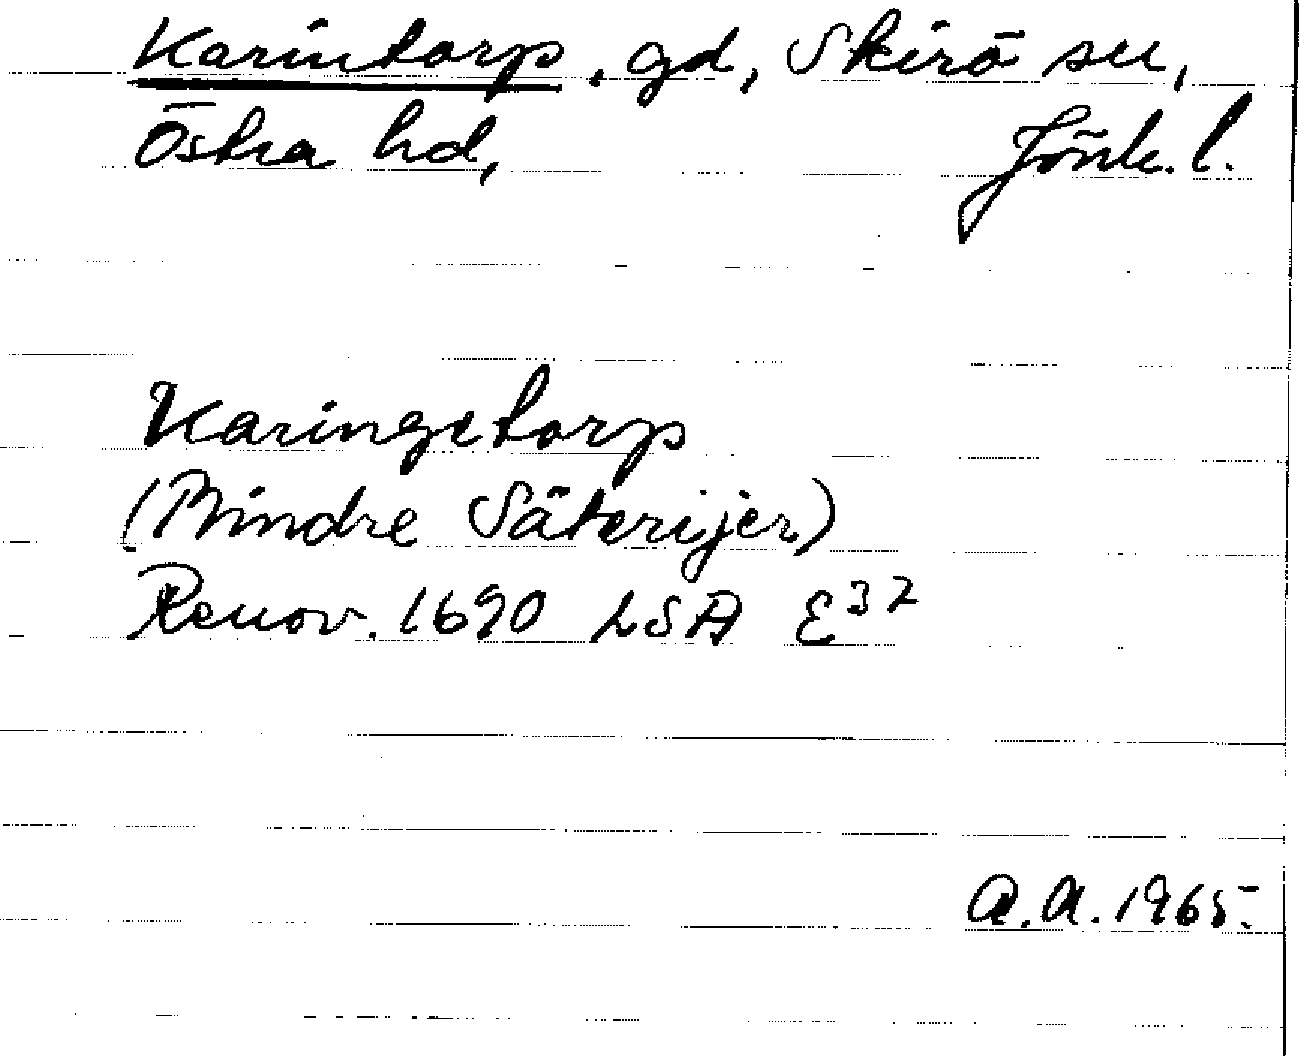 Karintorp, gd, Skirö sn,
Östra hd, Jönk. l.
Karingetorp
(Mindre Säterijer)
Renov. 1690 LSA E37
A.A. 1965.